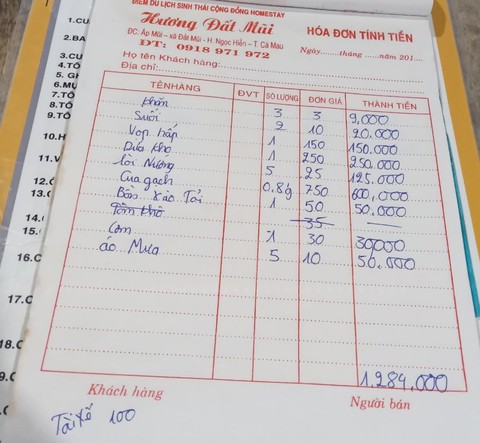 ĐIỂM DU LỊCH SINH THÁI CỘNG ĐỒNG HOMESTAY
Hương Đất Mũi
ĐC: Ấp Mũi - xã Đất Mũi - H. Ngọc Hiển - T. Cà Mau
ĐT: 0918 971 972
HÓA ĐƠN TÍNH TIỀN
Ngày......tháng ......năm 201....
Họ tên Khách hàng:
Địa chỉ:
TÊN HÀNG ĐVT SỐ LƯỢNG ĐƠN GIÁ THÀNH TIỀN
Khăn 3 3 9,000
Suối 2 10 20.000
Vọp hấp 1 150 150.000
Dừa kho 1 250 250.000
lòi Nướng 5 25 125.000
Cua gạch 0.8g 750 600,000
Bồn xào Tỏi 1 50 50.000
Tôm khô 35 —
Cơm 1 30 30,000
áo Mưa 5 10 50.000
1.284,000
Khách hàng Người bán
Tài xế 100
1.CU
2.BA
3.CU
4.TÔ
5. GH
6.MỰ
7.TÔ
8.TÔ
9.TÔ
10.H
11.V
12.C
13.C
14.
15.
16.C
17.C
18.C
9.C